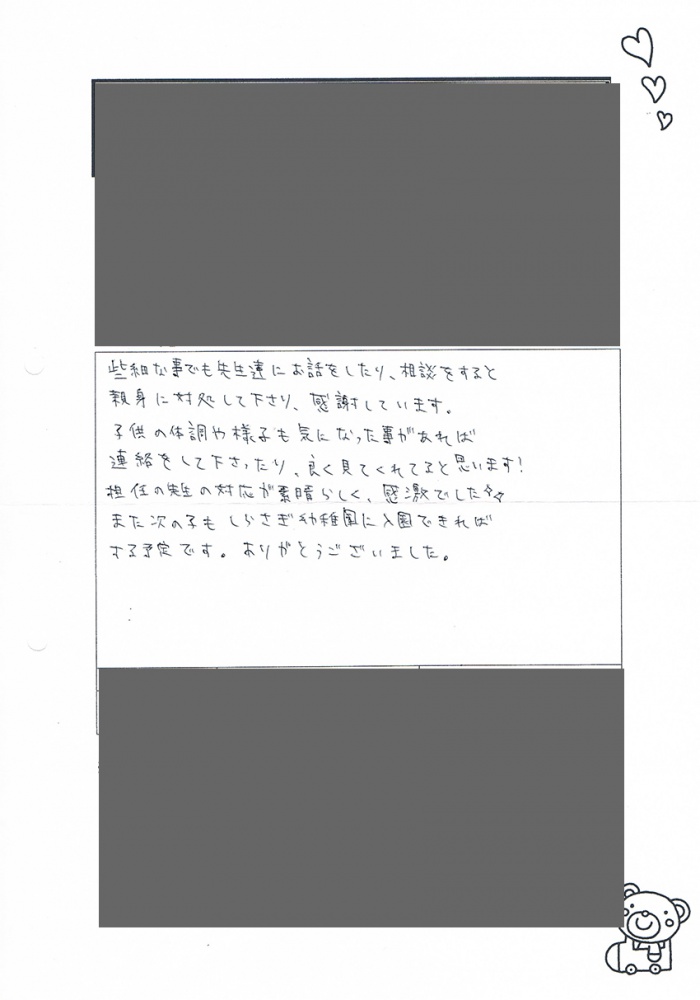 些細な事でも先生達にお話をしたり、相談をすると
親身に対処して下さり、感謝しています。
子供の体調や様子も気になった事があれば
連絡をして下さったり、良く見てくれてると思います!
担任の先生の対応が素晴らしく、感激でした☆☆
また次の子もしらさぎ幼稚園に入園できれば
する予定です。ありがとうございました。